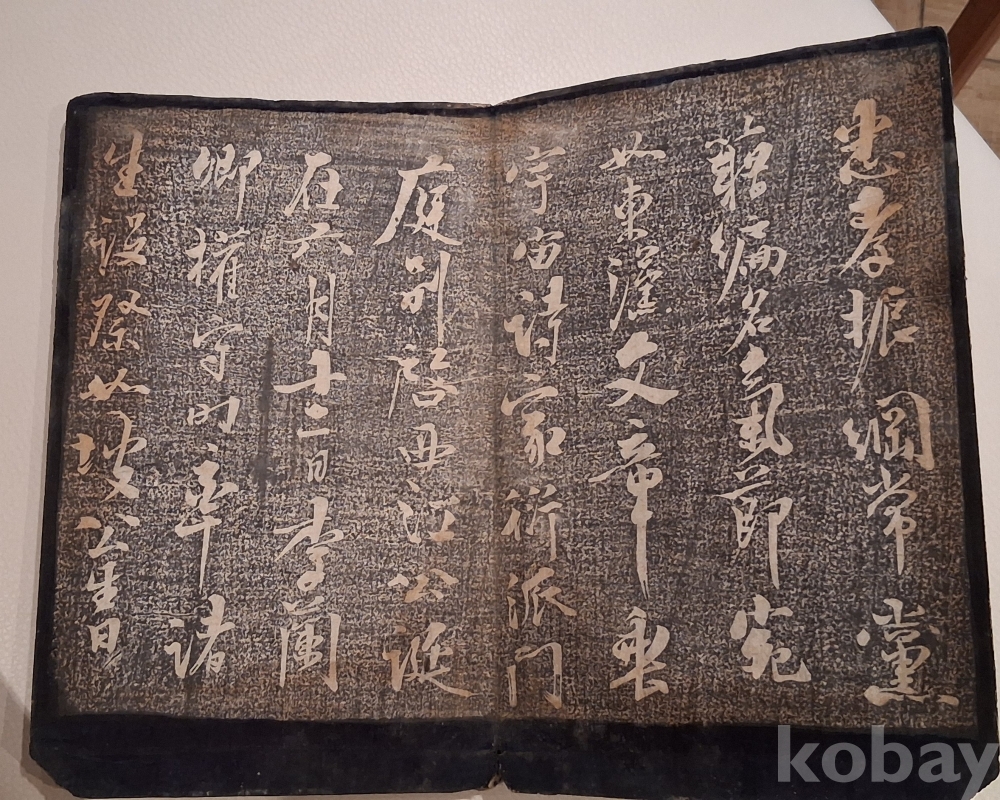 忠孝振綱常黨
籍編名氣節宛
如東漢文章垂
宇宙詩家衍派門
庭別啓西江公誕
在六月十二日李蘭
卿權守時率諸
生設祭如坡公生日
kobay